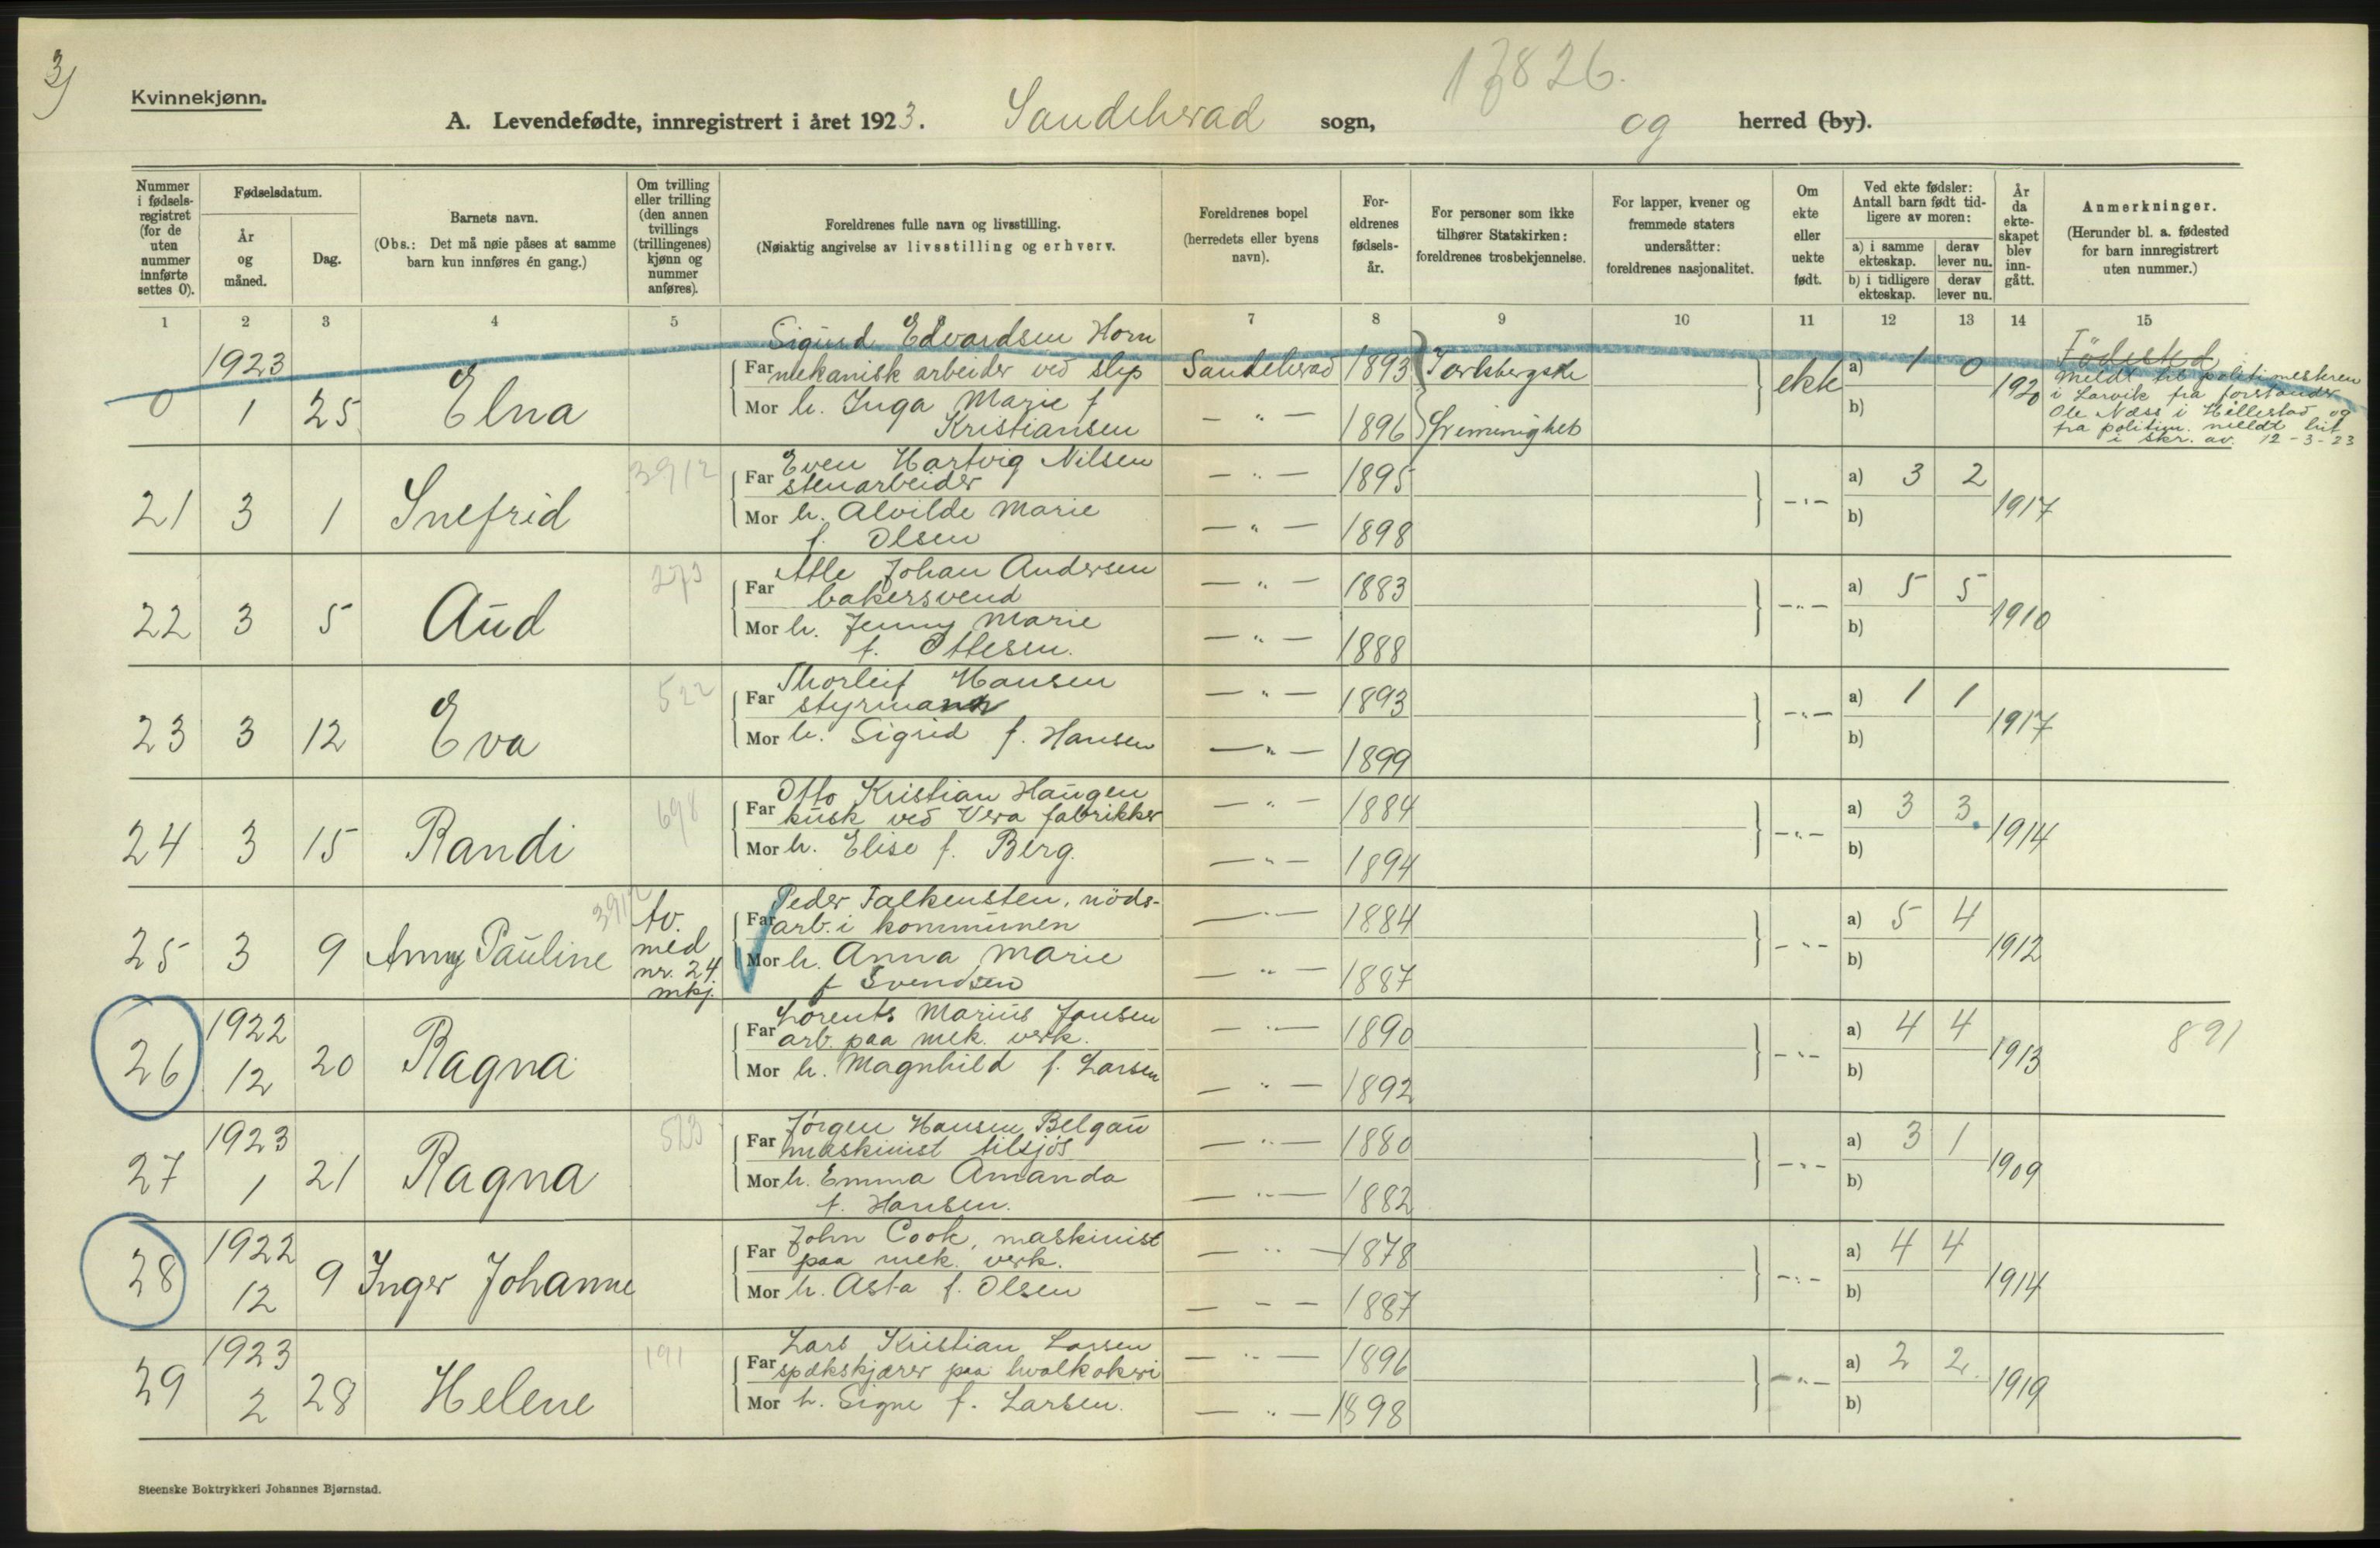 3)
Kvinnekjønn.
17826.
A. Levendefødte, innregistrert i året 1923. Sandeherad sogn, og herred (by).
Nummer i fødselsregistret (for de uten nummer innførte settes 0).
Fødselsdatum.
År og måned.
Dag.
Barnets navn.
(Obs.: Det må nøie påses at samme barn kun innføres én gang.)
Om tvilling eller trilling (den annen tvillings (trillingenes) kjønn og nummer anføres).
Foreldrenes fulle navn og livsstilling.
(Nøiaktig angivelse av livsstilling og erhverv.
Foreldrenes bopel (herredets eller byens navn).
Foreldrenes fødselsår.
For personer som ikke tilhører Statskirken: foreldrenes trosbekjennelse.
For lapper, kvener og fremmede staters undersåtter: foreldrenes nasjonalitet.
Om ekte eller uekte født.
Ved ekte fødsler: Antall barn født tidligere av moren:
a) i samme ekteskap. derav lever nu.
b) i tidligere ekteskap. derav lever nu.
År da ekteskapet blev inngått.
Anmerkninger.
(Herunder bl. a. fødested for barn innregistrert uten nummer.)
1 2 3 4 5 7 8 9 10 11 12 13 14 15
0 1923 1 25 Elna
Sigurd Edvardsen Horn
Far mekanisk arbeider ved slip Sandeherad 1893 Jarlsbergske
Mor h. Inga Marie f. Kristiansen — " — 1896 frimenighet
ekte a) 1 0 b) 1920
Födested
meldt til politimesteren
i Larvik fra forstander
Ole Næss i Hillestad og
fra politim. meldt hit
i skr. av. 12-3-23
21 3 1 Snefrid 3912
Far Even Hartvig Nilsen stenarbeider — " — 1895
Mor h. Alvilde Marie f. Olsen — " — 1898
— " — a) 3 2 b) 1917
22 3 5 Aud 273
Far Atle Johan Andersen bakersvend — " — 1883
Mor h. Jenny Marie f. Ottesen. — " — 1888
— " — a) 5 5 b) 1910
23 3 12 Eva 522
Far Thorleif Hansen styrmann — " — 1893
Mor h. Sigrid f. Hansen — " — 1899
— " — a) 1 1 b) 1917
24 3 15 Randi 698
Far Otto Kristian Haugen kusk ved Vera fabrikker — " — 1884
Mor h. Elise f. Berg. — " — 1894
— " — a) 3 3 b) 1914
25 3 9 Anny Pauline 3912 tv. med nr. 24 mkj.
Far Peder Falkensten, nödsarb. i kommunen — " — 1884
Mor h. Anna Marie f Svendsen — " — 1887
— " — a) 5 4 b) 1912
26 1922 12 20 Ragna
Far Lorents Marius Jansen arb. paa mek. verk. — " — 1890
Mor h. Magnhild f. Larsen — " — 1892
— " — a) 4 4 b) 1913 891
27 1923 1 21 Ragna
Far Jörgen Hansen Belgau maskinist tilsjös — " — 1880
Mor h. Emma Amanda f. Hansen. — " — 1882
— " — a) 3 1 b) 1909
28 1922 12 9 Inger Johanne
Far John Cook, maskinist paa mek. verk. — " — 1878
Mor h. Asta f. Olsen — " — 1887
— " — a) 4 4 b) 1914
29 1923 2 28 Helene 191
Far Lars Kristian Larsen spækskjærer paa hvalkokeri — " — 1896
Mor h. Signe f. Larsen. — " — 1898
— " — a) 2 2 b) 1919
Steenske Boktrykkeri Johannes Bjørnstad.